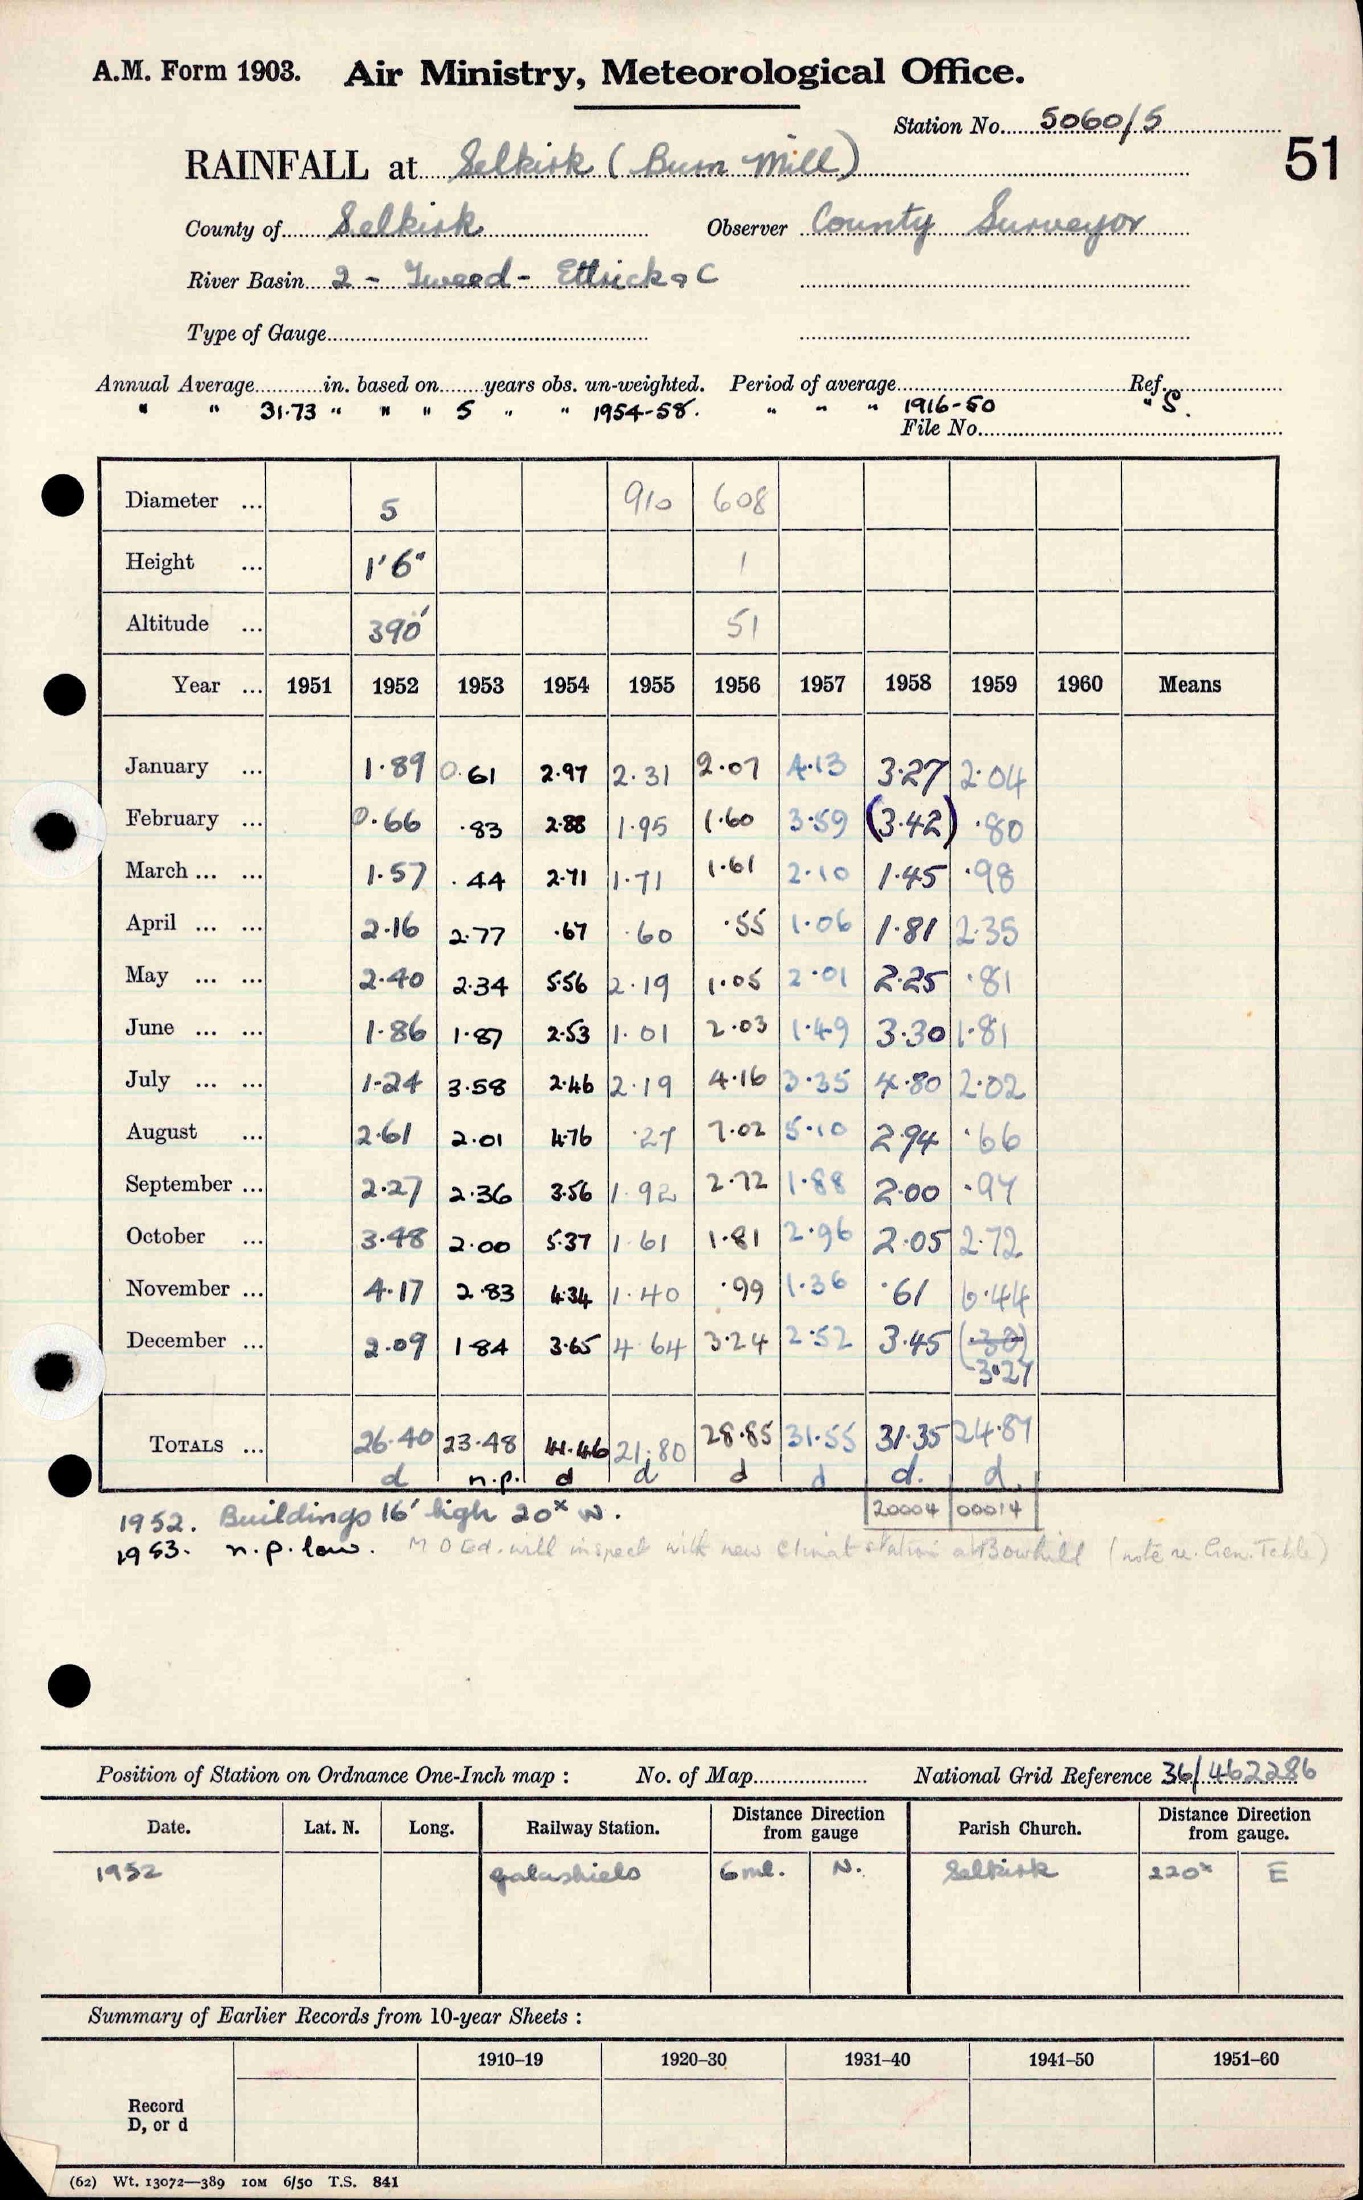 A.M. Form 1903. Air Ministry, Meteorological Office.
Station No. 5060/5
51
RAINFALL at Selkirk (Burn Mill)
County of Selkirk Observer County Surveyor
River Basin 2 - Tweed - Ettrick & C
Type of Gauge
Annual Average in. based on years obs. un-weighted. Period of average Ref.
" " 31.73 " " " 5 " " 1954-58. " " " 1916-50 " S.
File No.
Diameter ... 5 910 608
Height ... 1'6" 1
Altitude ... 390' 51
Year ... 1951 1952 1953 1954 1955 1956 1957 1958 1959 1960 Means
January ... 1.89 0.61 2.97 2.31 2.07 4.13 3.27 2.04
February ... 0.66 .83 2.88 1.95 1.60 3.59 (3.42) .80
March ... ... 1.57 .44 2.71 1.71 1.61 2.10 1.45 .98
April ... ... 2.16 2.77 .67 .60 .55 1.06 1.81 2.35
May ... ... 2.40 2.34 5.56 2.19 1.05 2.01 2.25 .81
June ... ... 1.86 1.87 2.53 1.01 2.03 1.49 3.30 1.81
July ... ... 1.24 3.58 2.46 2.19 4.16 3.35 4.80 2.02
August ... 2.61 2.01 4.76 .27 7.02 5.10 2.94 .66
September ... 2.27 2.36 3.56 1.92 2.72 1.88 2.00 .97
October ... 3.48 2.00 5.37 1.61 1.81 2.96 2.05 2.72
November ... 4.17 2.83 4.34 1.40 .99 1.36 .61 6.44
December ... 2.09 1.84 3.65 4.64 3.24 2.52 3.45 (.38)
3.27
TOTALS ... 26.40 23.48 41.46 21.80 28.85 31.55 31.35 24.87
d n.p. d d d d d. d.
20004 00014
1952. Buildings 16' high 20x W.
1953. n.p. low. M O Ed. will inspect with new Climat station at Bowhill (note in Gen. Table)
Position of Station on Ordnance One-Inch map : No. of Map National Grid Reference 36/462286
Date. Lat. N. Long. Railway Station. Distance Direction from gauge Parish Church. Distance Direction from gauge.
1952 Galashiels 6 ml. N. Selkirk 220x E
Summary of Earlier Records from 10-year Sheets :
1910–19 1920–30 1931–40 1941–50 1951–60
Record
D, or d
(62) Wt. 13072—389 10M 6/50 T.S. 841